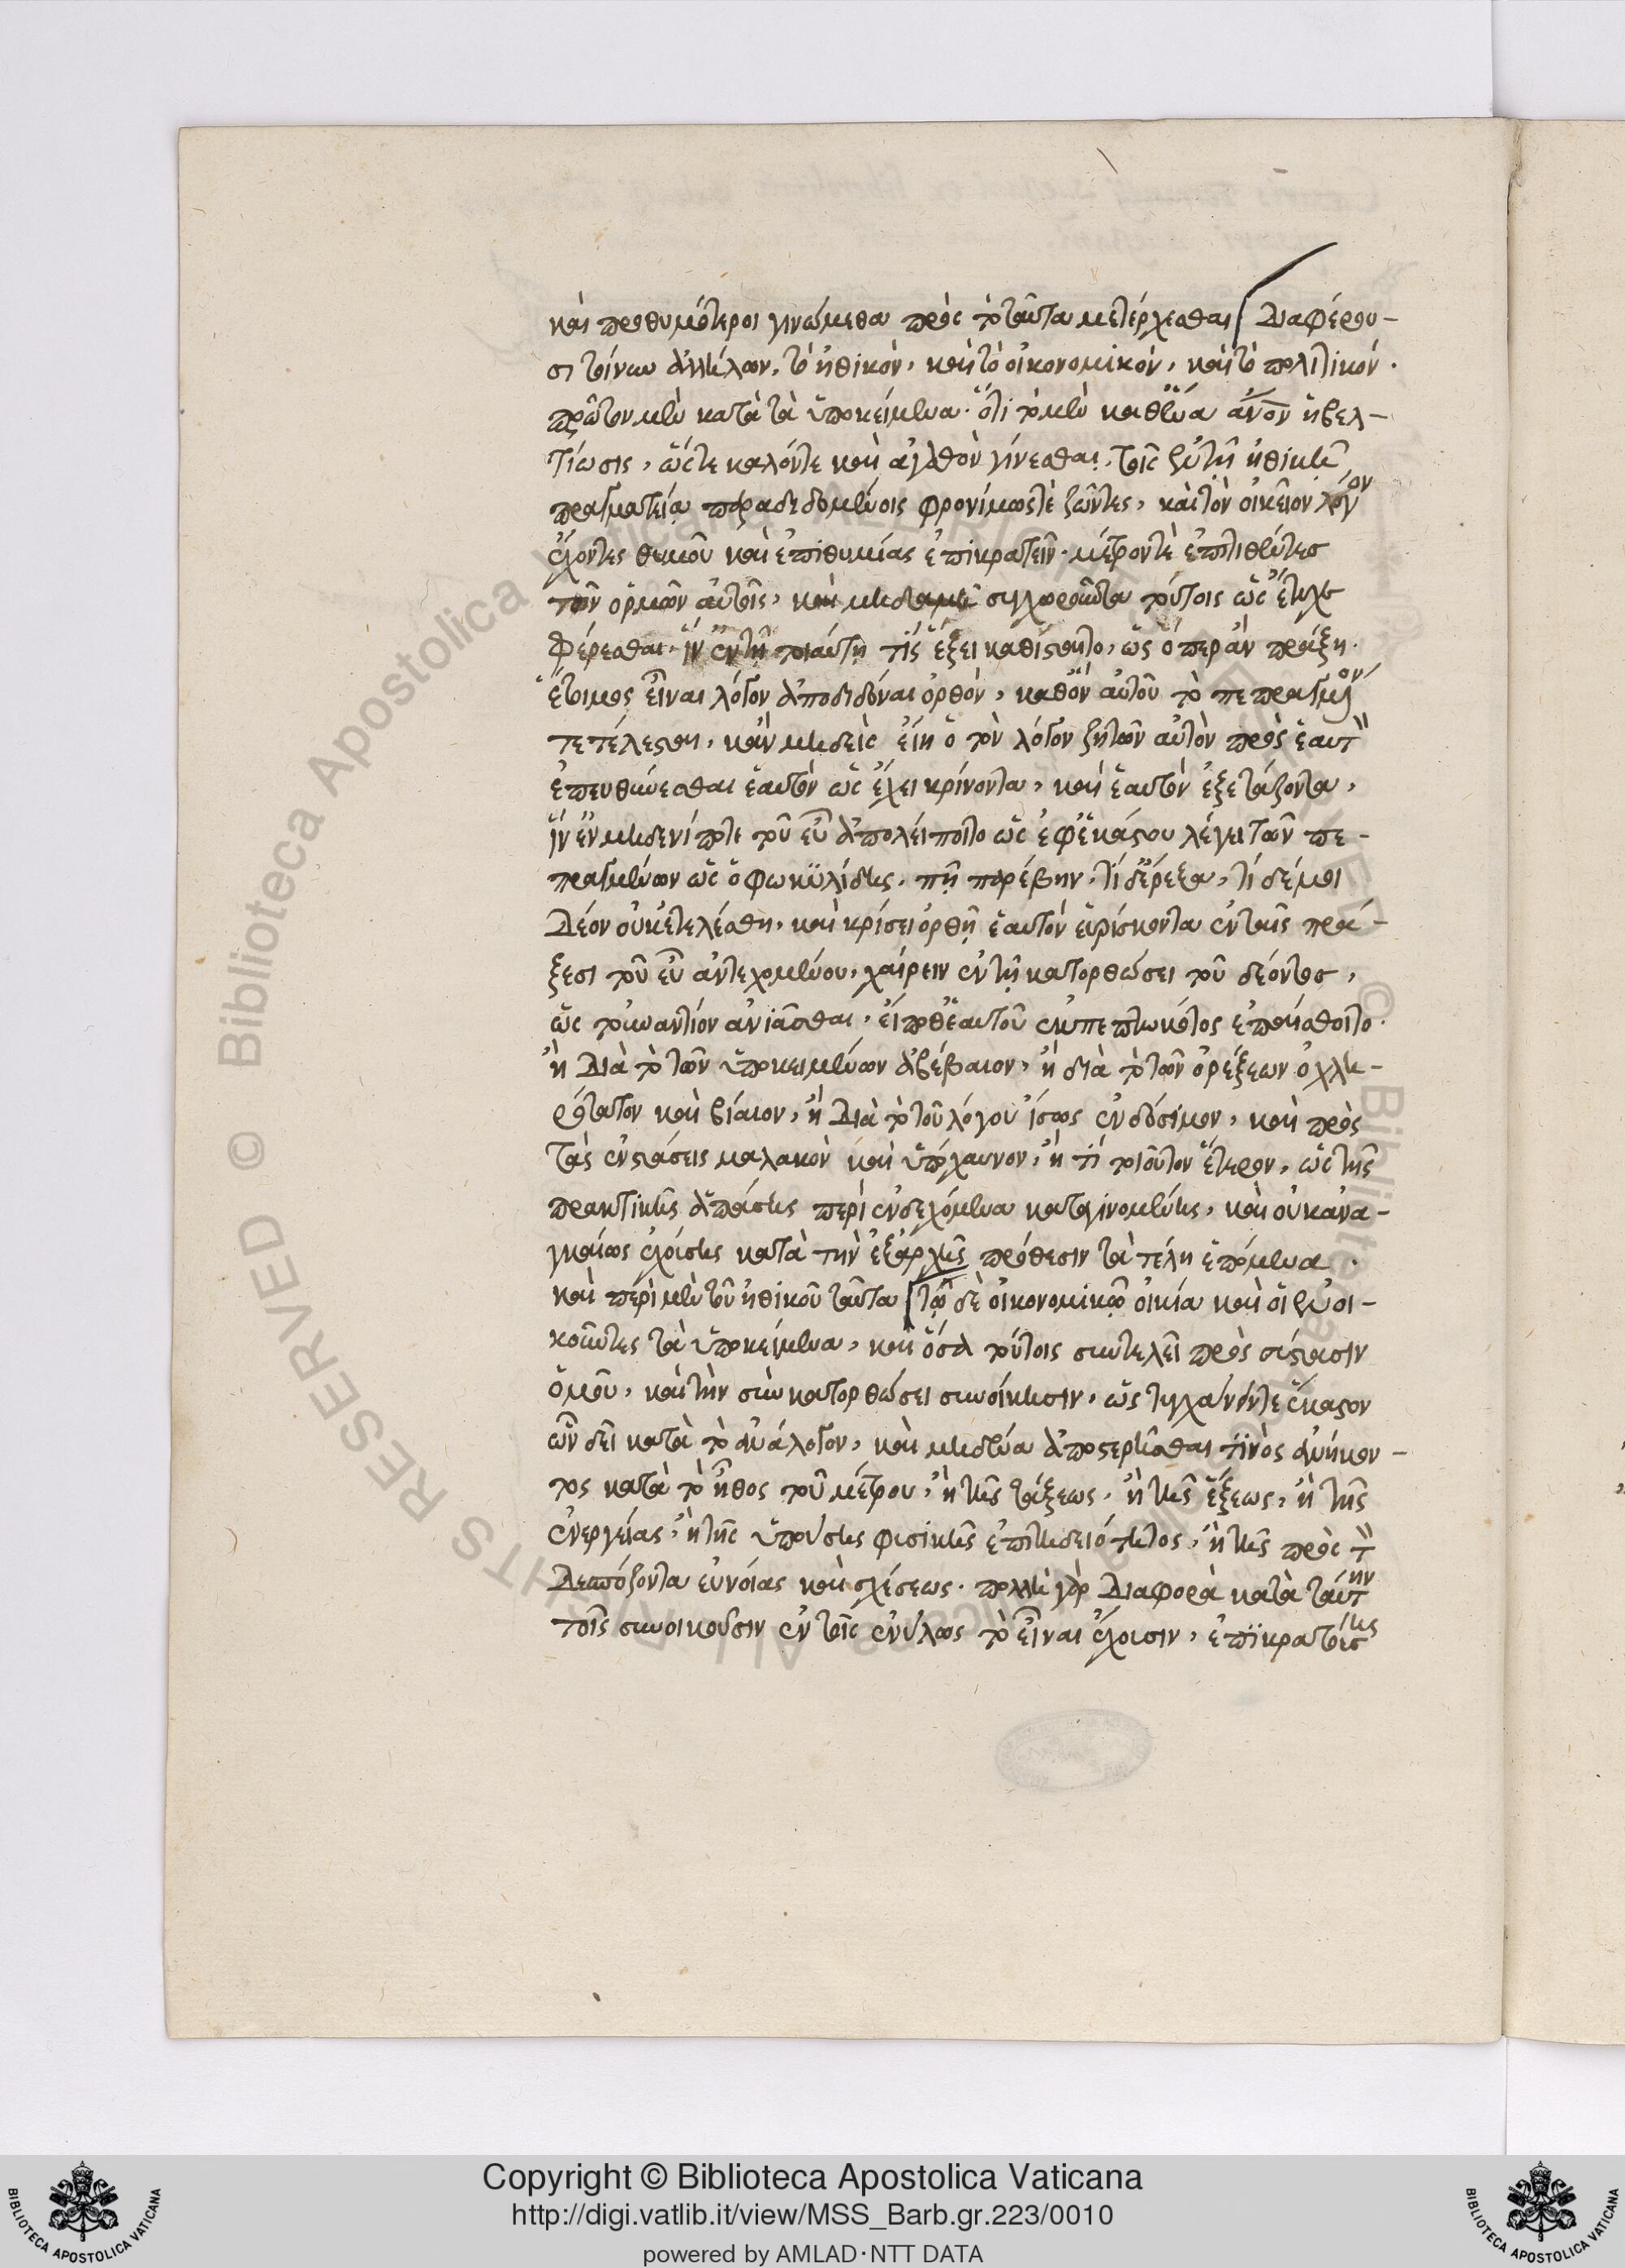 καὶ προθυμότεροι γινώμεθα πρὸς τὸ ταῦτα μετέρχεσθαι Διαφέρου-
σι τοίνυν ἀλλήλων, τὸ ἠθικὸν, καὶ τὸ οἰκονομικὸν, καὶ τὸ πολιτικόν.
πρῶτον μὲν κατὰ τὰ ὑποκείμενα. ὅτι τὸ μὲν καθ' ἕνα ἄνον ἡ βελ-
τίωσις, ὥςτε καλόντε καὶ ἀγαθὸν γίνεσθαι, τοῖς ἐν τῇ ἠθικῇ
πραγματείᾳ παραδεδομένοις φρονίμως τὲ ζῶντες, καὶ τὸν οἰκεῖον λόγον
ἔχοντες θυμοῦ καὶ ἐπιθυμίας ἐπικρατεῖν. μέτρον τὲ ἐπιτιθέντες
τῶν ὁρμῶν αὐτοῖς, καὶ μηδαμῇ συγχωροῦντα τούτοις ὡς ἔτυχε
φέρεσθαι. ἵν' ἐν τῇ τοιαύτῃ τίς ἕξει καθίσταιτο, ὡς ὅπερ ἂν πράξῃ.
ἕτοιμος εἶναι λόγον ἀποδιδόναι ὀρθὸν, καθ' ὃν αὐτοῦ τὸ πεπραγμένον
τετέλεσται, κἂν μηδεὶς εἴη ὁ τὸν λόγον ζητῶν αὐτὸν πρὸς ἑαυτὸν
ἐπευθύνεσθαι ἑαυτὸν ὡς ἔχει κρίνοντα, καὶ ἑαυτὸν ἐξετάζοντα,
ἵν' ἐν μηδενί ποτε τοῦ εὖ ἀπολείποιτο ὡς ἐφ' ἑκάστου λέγει τῶν πε-
πραγμένων ὡς ὁ φωκυλίδης, πῇ παρέβην, τί δ' ἔρεξα, τί δέ μοι
Δέον οὐκ ἐτελέσθη, καὶ κρίσει ὀρθῇ ἑαυτὸν εὑρίσκοντα ἐν ταῖς πρά-
ξεσι τοῦ εὖ ἀντεχομένου, χαίρειν ἐν τῇ κατορθώσει τοῦ δέοντος,
ὡς τοὐναντίον ἀνιᾶσθαι, εἴ ποθ' ἑαυτοῦ ἐκπεπτωκότος ἐπαίσθοιτο.
ἢ Διὰ τὸ τῶν ὑποκειμένων ἀβέβαιον, ἢ διὰ τὸ τῶν ὀρέξεων ὀχλη-
ρότατον καὶ βίαιον, ἢ Διὰ τὸ τοῦ λόγου ἴσως ἐνδόσιμον, καὶ πρὸς
τὰς ἐνστάσεις μαλακὸν καὶ ὑπόχαυνον, ἢ τί τοιοῦτον ἕτερον, ὡς τῆς
πρακτικῆς ἁπάσης περὶ ἐνδεχόμενα καταγινομένης, καὶ οὐκ ἀνα-
γκαίως ἐχούσης κατὰ τὴν ἐξ ἀρχῆς πρόθεσιν τὰ τέλη ἑπόμενα.
καὶ περὶ μὲν τοῦ ἠθικοῦ ταῦτα τῷ δὲ οἰκονομικῷ οἰκία καὶ οἱ ἐνοι-
κοῦντες τὰ ὑποκείμενα, καὶ ὅσα τούτοις συντελεῖ πρὸς σύστασιν
ὁμοῦ, καὶ τὴν σὺν κατορθώσει συνοίκησιν, ὡς τυγχάνοντε ἕκαστον
ὧν δεῖ κατὰ τὸ ἀνάλογον, καὶ μηδένα ἀποστερεῖσθαι τινὸς ἀνήκον-
τος κατὰ τὸ ἦθος τοῦ μέτρου, ἢ τῆς τάξεως, ἢ τῆς ἕξεως, ἢ τῆς
ἐνεργείας, ἢ τῆς ὑπούσης φυσικῆς ἐπιτηδειότητος, ἢ τῆς πρὸς τὸν
Δεσπόζοντα εὐνοίας καὶ σχέσεως. πολλὴ γὰρ Διαφορὰ κατὰ ταύτην
τοῖς συνοικοῦσιν ἐν τοῖς ἐνύλως τὸ εἶναι ἔχουσιν, ἐπικρατούσης
Copyright © Biblioteca Apostolica Vaticana
http://digi.vatlib.it/view/MSS_Barb.gr.223/0010
powered by AMLAD·NTT DATA